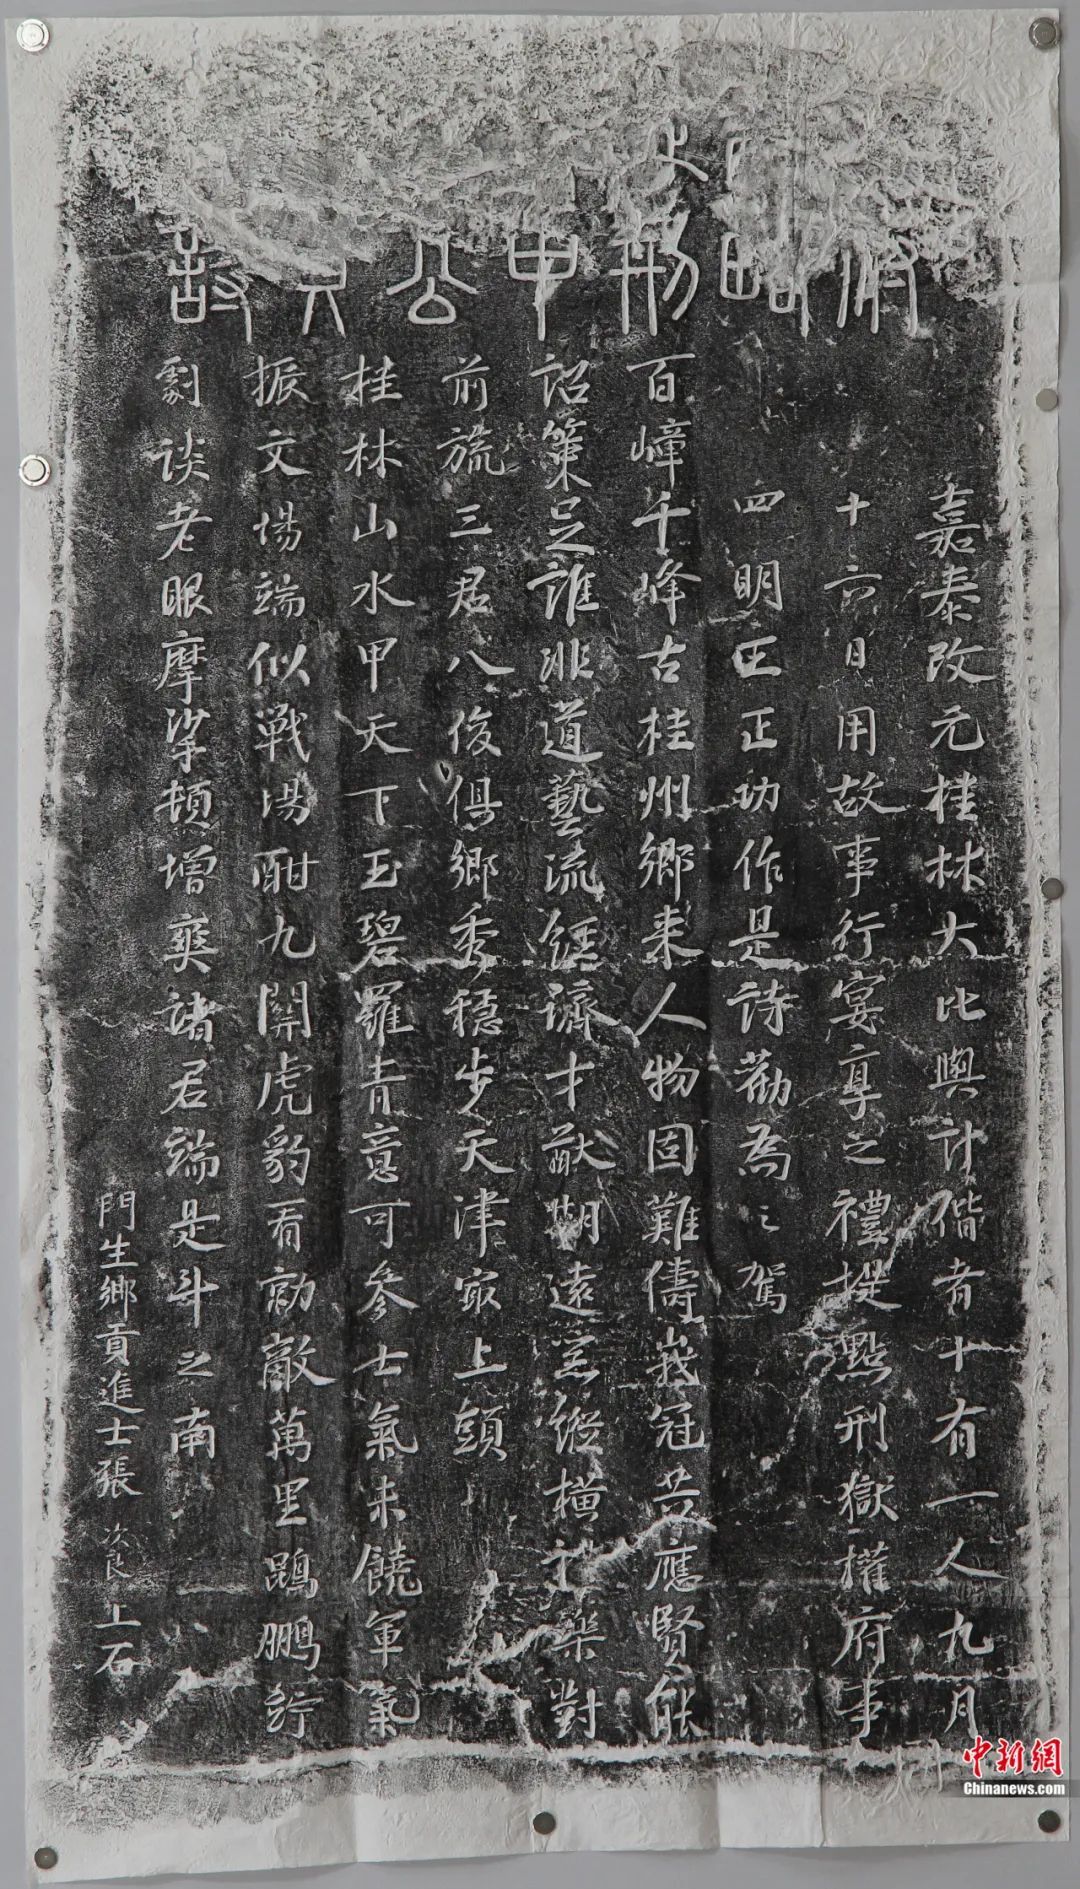 公
嘉泰改元桂林大比與計偕者十有一人九月
十六日用故事行宴享之禮提點刑獄權府事
四明王正功作是詩勸為之駕
百嶂千峰古桂州鄉來人物固難儔峩冠共應賢能
詔策足誰非道藝流經濟才猷期遠業縱橫礼樂對
前旒三君八俊俱鄉秀穩步天津冣上頭
桂林山水甲天下玉碧羅青意可參士氣未饒軍氣
振文場端似戰場酣九關虎豹看勍敵萬里鵾鵬竚
劇談老眼摩挲頓增爽諸君端是斗之南
門生鄉貢進士張次良上石
中新網
Chinanews.com